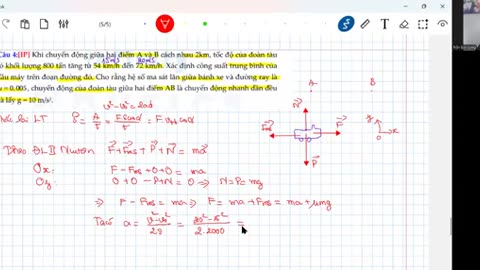 (5/5)
Câu 4:[IP] Khi chuyển động giữa hai điểm A và B cách nhau 2km, tốc độ của đoàn tàu
15m/s 20m/s
có khối lượng 800 tấn tăng từ 54 km/h đến 72 km/h. Xác định công suất trung bình của
đầu máy trên đoạn đường đó. Cho rằng hệ số ma sát lăn giữa bánh xe và đường ray là
= 0,005, chuyển động của đoàn tàu giữa hai điểm AB là chuyển động nhanh dần đều
và lấy g = 10 m/s².
v² - v₀² = 2ad
A B
LT P = A/t = F.s.cosα/t = F.v.cosα
N
Fms F
y x
O
P
Theo ĐLII Newton F + Fms + P + N = ma
Ox: F - Fms + 0 + 0 = ma
Oy: 0 + 0 - P + N = 0 ⇒ N = P = mg
⇒ F - Fms = ma ⇒ F = ma + Fms = ma + μmg
Ta có a = v² - v₀²/2.s = 20² - 15²/2.2000 =